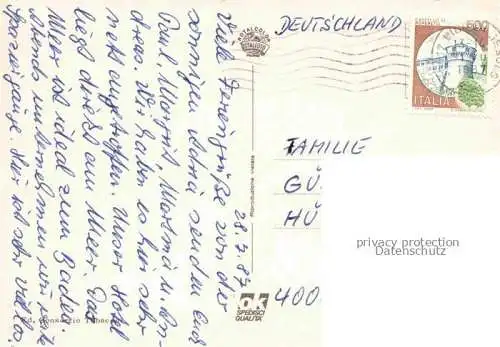 28.7.87
Viele Feriengrüße von der
sonnigen Adria senden Euch
Paul, Margrit, Martina u. An-
dreas. Wir haben es hier sehr
nett angetroffen. Unser Hotel
liegt direkt am Meer. Das
Meer ist ideal zum Baden.
Abends unternehmen wir
Spaziergänge. Hier ist sehr viel los.
Ed. Consorzio
ROTALCOLOR
Riproduzione vietata
OK
SPEDISCI
QUALITA'
DEUTSCHLAND
500
ITALIA
FAMILIE
GÜ
HÜ
400
privacy protection
Datenschutz